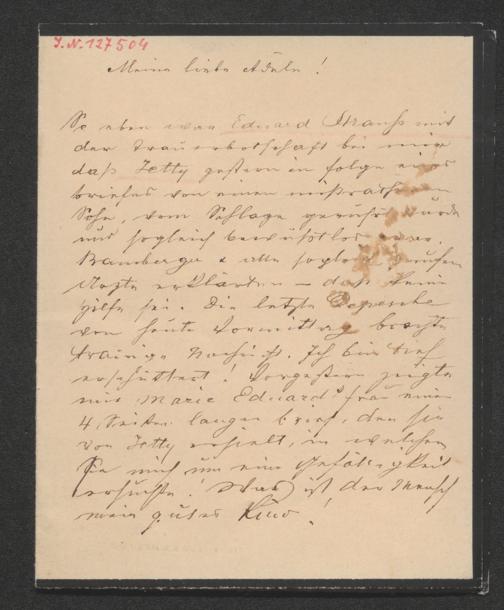 J.N. 127504
Meine liebe Adele!
So eben war Eduard Strauß mit
der Trauerbotschaft bei mir
daß Jetty gestern in folge eines
briefes von einen mißrathenen
Sohn, vom Schlage gerührt wurde
und sogleich bewußtlos war.
Bamberger & alle sogleich gerufen
Ärzte erklärten – daß keine
Hilfe sei. Die letzte Depesche
von heute Vormittag brachte
traurige Nachricht. Ich bin tief
erschüttert! Vorgestern zeigte
mir Marie Eduard's Frau einen
4 Seiten langen brief, den sie
von Jetty erhielt, in welchen
sie mich um eine Gefälligkeit
ersuchte! Was ist der Mensch
mein gutes Kind!